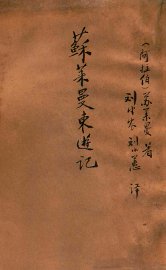 （阿拉伯）苏莱曼 著
刘半农 刘小蕙 译
蘇萊曼東遊記